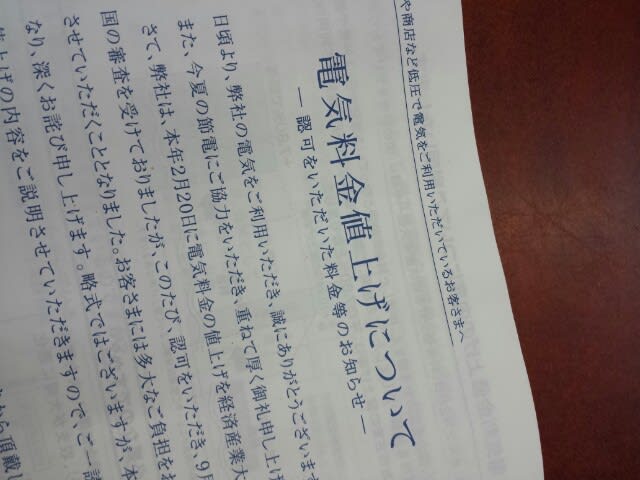 や商店など低圧で電気をご利用いただいているお客さまへ
電気料金値上げについて
― 認可をいただいた料金等のお知らせ ―
日頃より、弊社の電気をご利用いただき、誠にありがとうございます
また、今夏の節電にご協力をいただき、重ねて厚く御礼申し上げ
さて、弊社は、本年2月20日に電気料金の値上げを経済産業大
国の審査を受けておりましたが、このたび、認可をいただき、9月
させていただくこととなりました。お客さまには多大なご負担をお
なり、深くお詫び申し上げます。略式ではございますが、本
値上げの内容をご説明させていただきますので、ご一読
から頂戴し